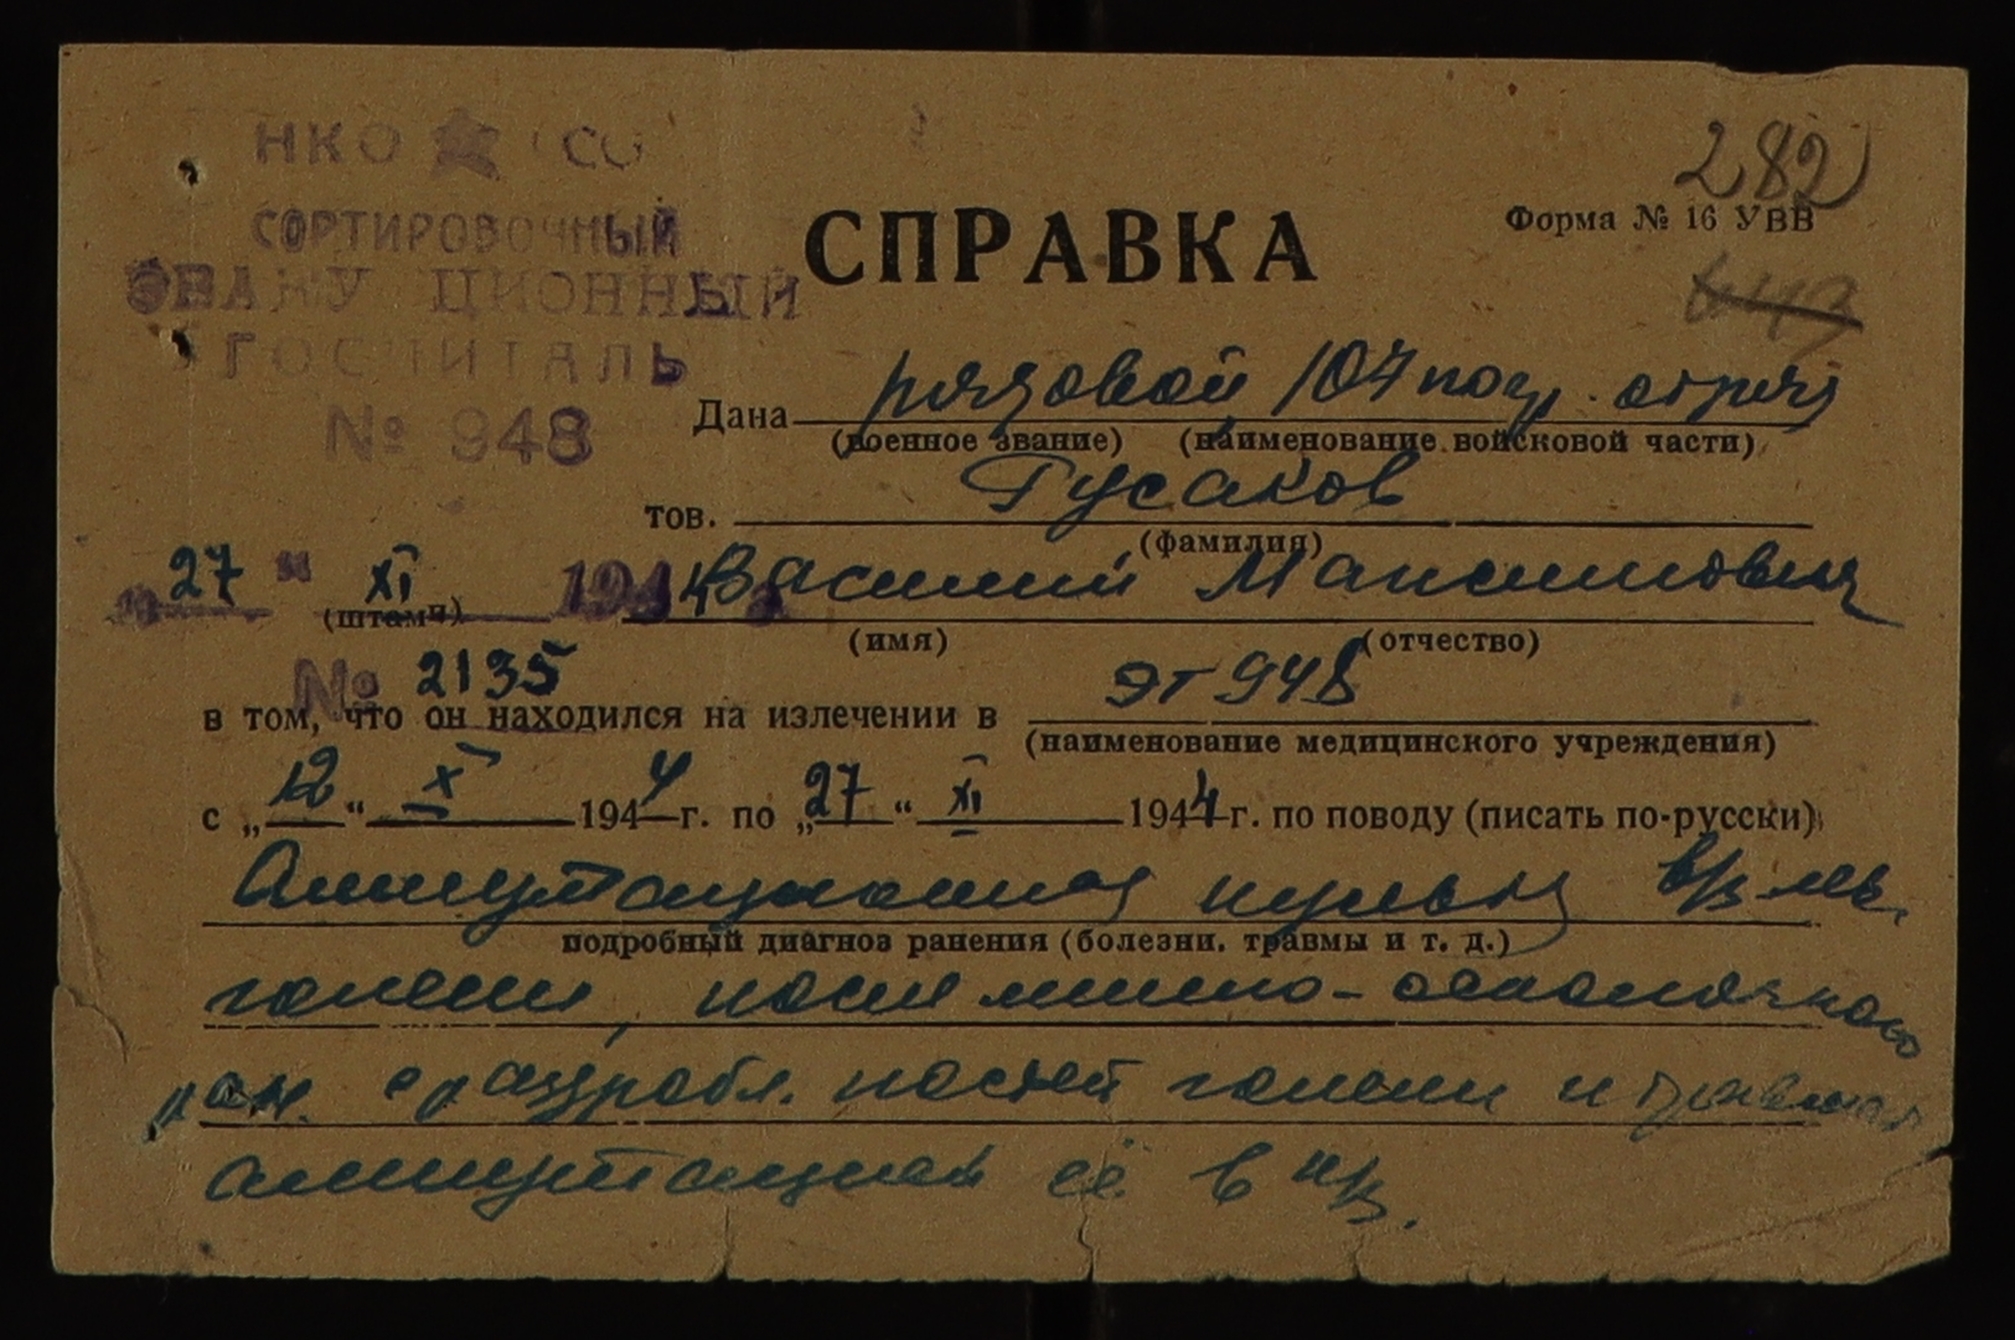 НКО СС
СОРТИРОВОЧНЫЙ
ЭВАКУАЦИОННЫЙ
ГОСПИТАЛЬ
№ 948
282
Форма № 16 УВВ
443
СПРАВКА
Дана рядовой 107 погр. отряд
(военное звание) (наименование войсковой части)
тов. Гусаков
(фамилия)
„27“ XI 1944 г.
(штамп)
Василий Максимович
(имя) (отчество)
№ 2135
в том, что он находился на излечении в ЭГ 948
(наименование медицинского учреждения)
с „12“ X 1944 г. по „27“ XI 1944 г. по поводу (писать по-русски)
Ампутационная культя в/з лев.
подробный диагноз ранения (болезни, травмы и т. д.)
голени, после минно-осколочного
ран. с раздробл. костей голени и
ампутацией её в н/з.